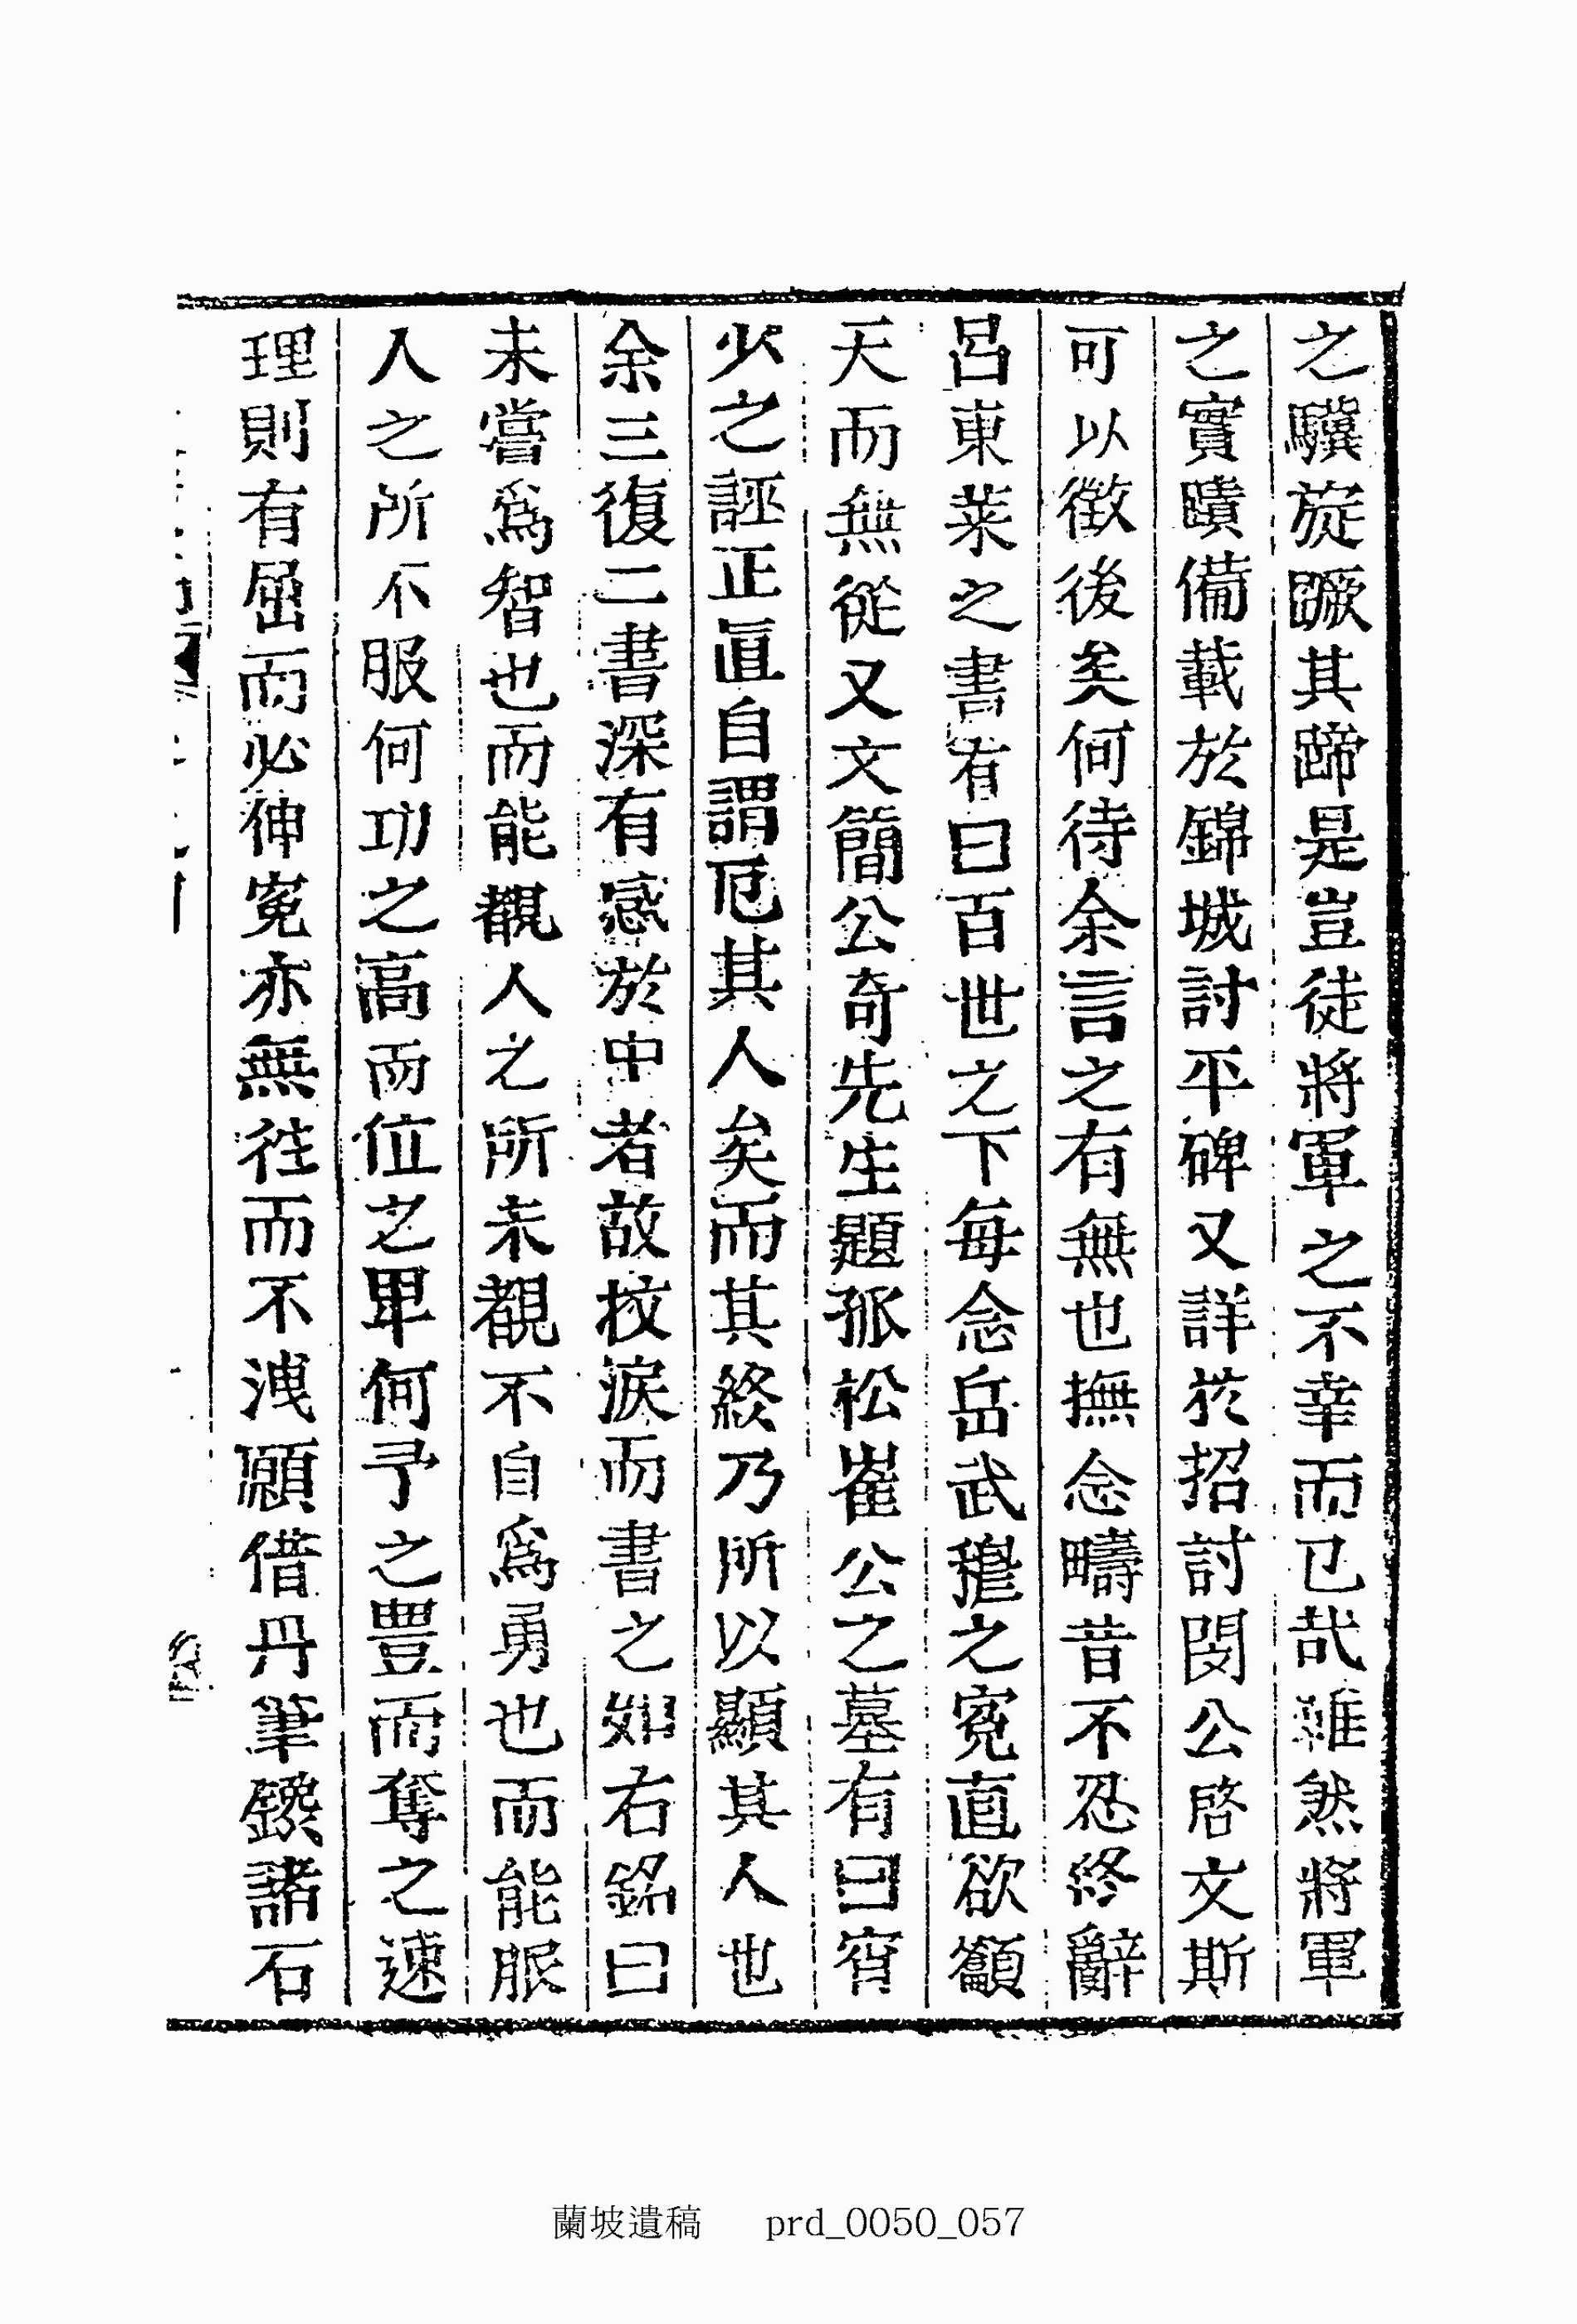 之驥旋蹶其蹄是豈徒將軍之不幸而已哉雖然將軍
之實蹟備載於錦城討平碑又詳於招討閔公啓文斯
可以徵後矣何待余言之有無也撫念疇昔不忍終辭
呂東萊之書有曰百世之下每念岳武穆之寃直欲籲
天而無從又文簡公奇先生題孤松崔公之墓有曰宵
少之誣正直自謂厄其人矣而其終乃所以顯其人也
余三復二書深有感於中者故抆淚而書之如右銘曰
未嘗爲智也而能觀人之所未觀不自爲勇也而能服
人之所不服何功之高而位之卑何予之豊而奪之速
理則有屈而必伸寃亦無往而不洩願借丹筆鑱諸石
蘭坡遺稿 prd_0050_057